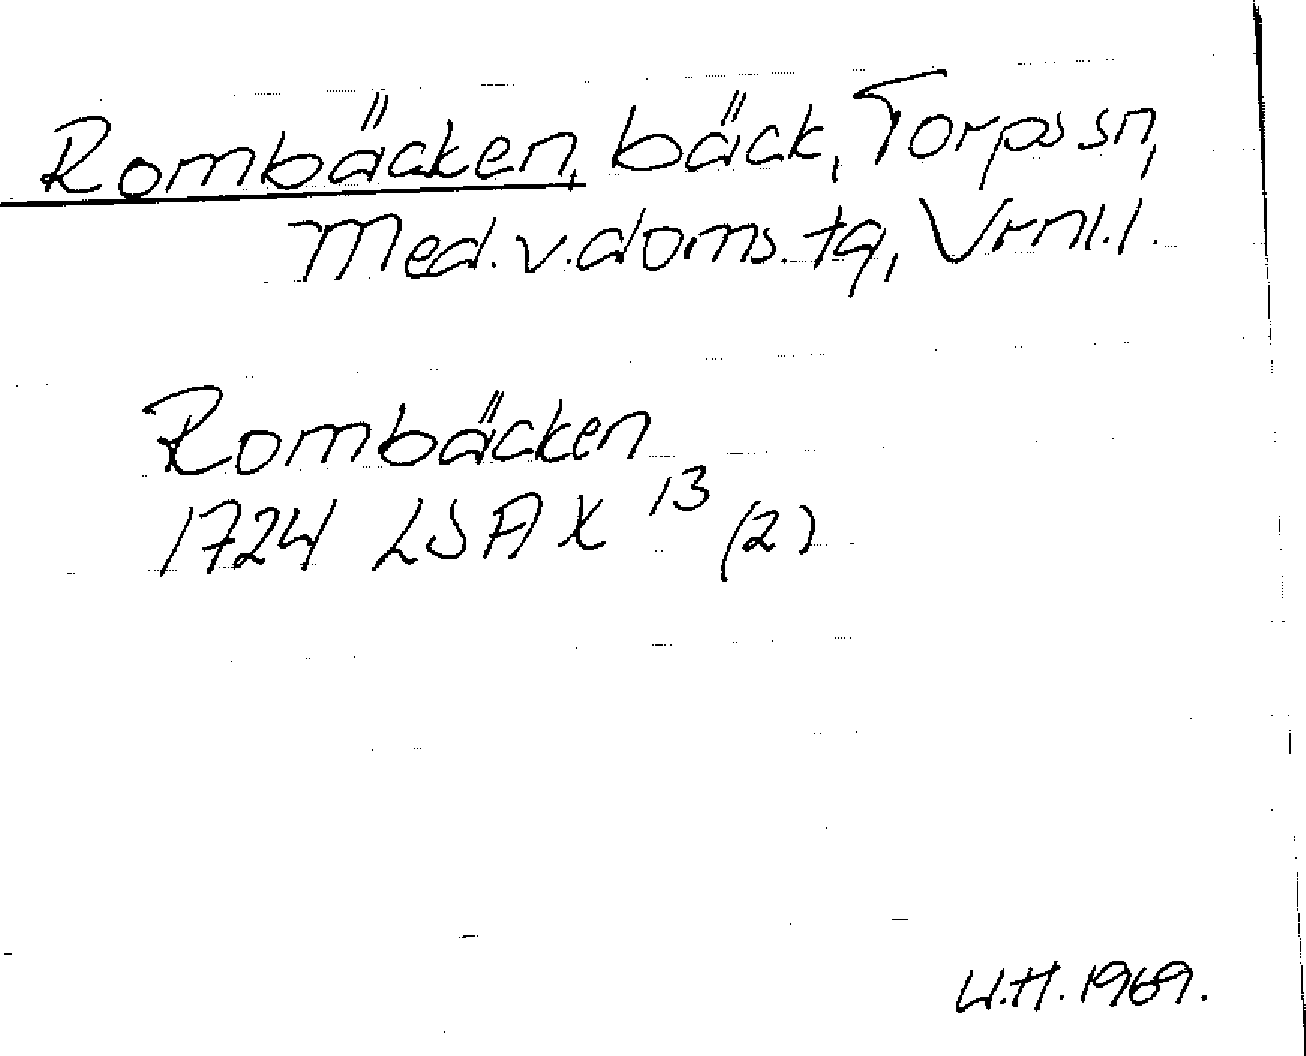 Rombäcken, bäck, Torps sn,
Med. v. doms. tg, Vrml. l.
Rombäcken
1724 LSA X 13 (2)
U.H. 1969.